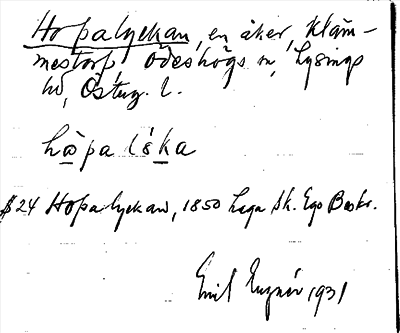 Hopalyckan, en åker, Kläm-
mestorp, Ödeshögs sn, Lysings
hd, Österg. l.
hɷpa lʹɛka
§ 24 Hopalyckan, 1850 Laga sk. Ego Beskr.
Emil 1931